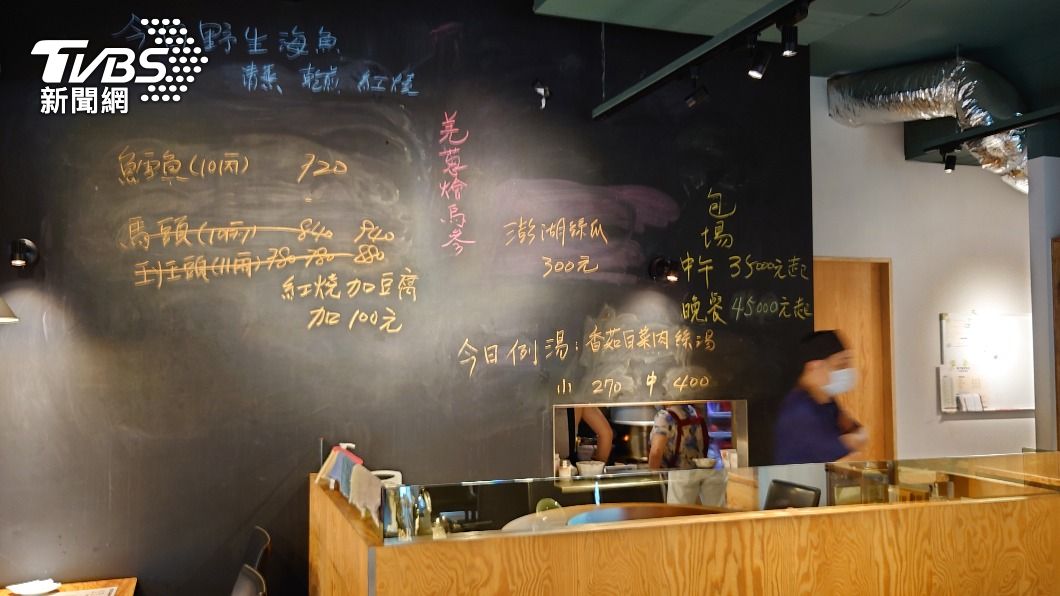 TVBS
新聞網
今日野生海魚
清蒸 乾煎 紅燒
鱈魚(10両) 920
馬頭(10両) 840 940
馬頭(11両) 780 780 880
紅燒加豆腐
加100元
羌蔥燴烏参
澎湖絲瓜
300元
包場
中午 35000元起
晚餐 45000元起
今日例湯:香菇白菜肉絲湯
小 270 中 400